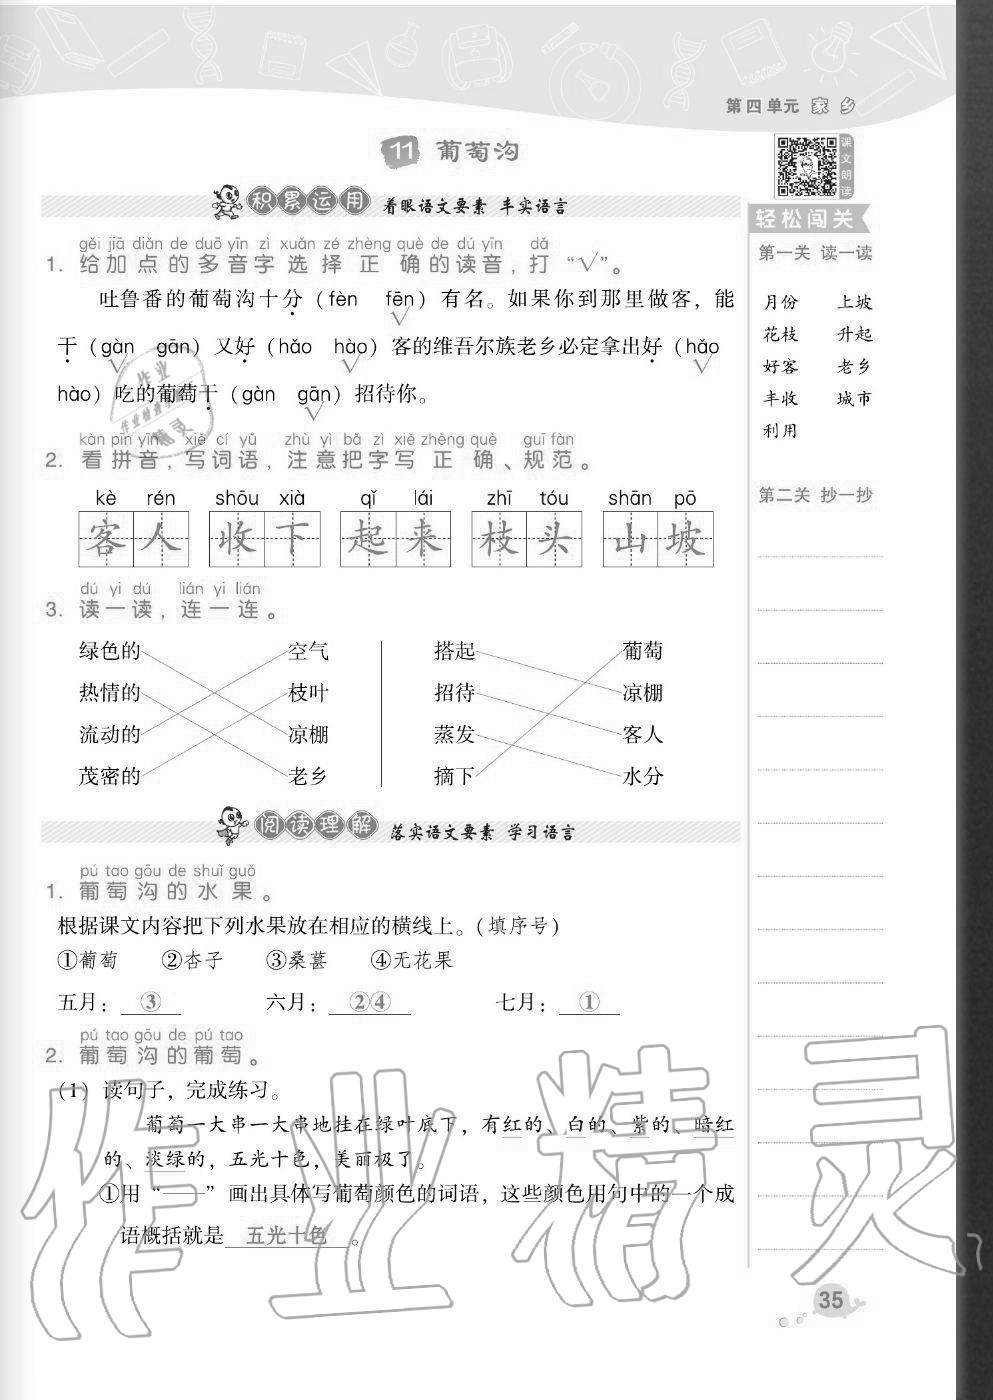 第四单元 家乡
11 葡萄沟
课文朗读
积累运用 着眼语文要素 丰实语言
gěi jiā diǎn de duō yīn zì xuǎn zé zhèng què de dú yīn dǎ
1. 给加点的多音字选择正确的读音，打“√”。
吐鲁番的葡萄沟十分（fèn fēn）有名。如果你到那里做客，能
√
干（gàn gān）又好（hǎo hào）客的维吾尔族老乡必定拿出好（hǎo
√ √ √
hào）吃的葡萄干（gàn gān）招待你。
√
kàn pīn yīn xiě cí yǔ zhù yì bǎ zì xiě zhèng què guī fàn
2. 看拼音，写词语，注意把字写正确、规范。
kè rén shōu xià qǐ lái zhī tóu shān pō
客人 收下 起来 枝头 山坡
dú yi dú lián yi lián
3. 读一读，连一连。
绿色的 空气 搭起 葡萄
热情的 枝叶 招待 凉棚
流动的 凉棚 蒸发 客人
茂密的 老乡 摘下 水分
阅读理解 落实语文要素 学习语言
pú tao gōu de shuǐ guǒ
1. 葡萄沟的水果。
根据课文内容把下列水果放在相应的横线上。（填序号）
①葡萄 ②杏子 ③桑葚 ④无花果
五月：③ 六月：②④ 七月：①
pú tao gōu de pú tao
2. 葡萄沟的葡萄。
（1）读句子，完成练习。
葡萄一大串一大串地挂在绿叶底下，有红的、白的、紫的、暗红
的、淡绿的，五光十色，美丽极了。
①用“——”画出具体写葡萄颜色的词语，这些颜色用句中的一个成
语概括就是五光十色。
轻松闯关
第一关 读一读
月份 上坡
花枝 升起
好客 老乡
丰收 城市
利用
第二关 抄一抄
35
作业精灵